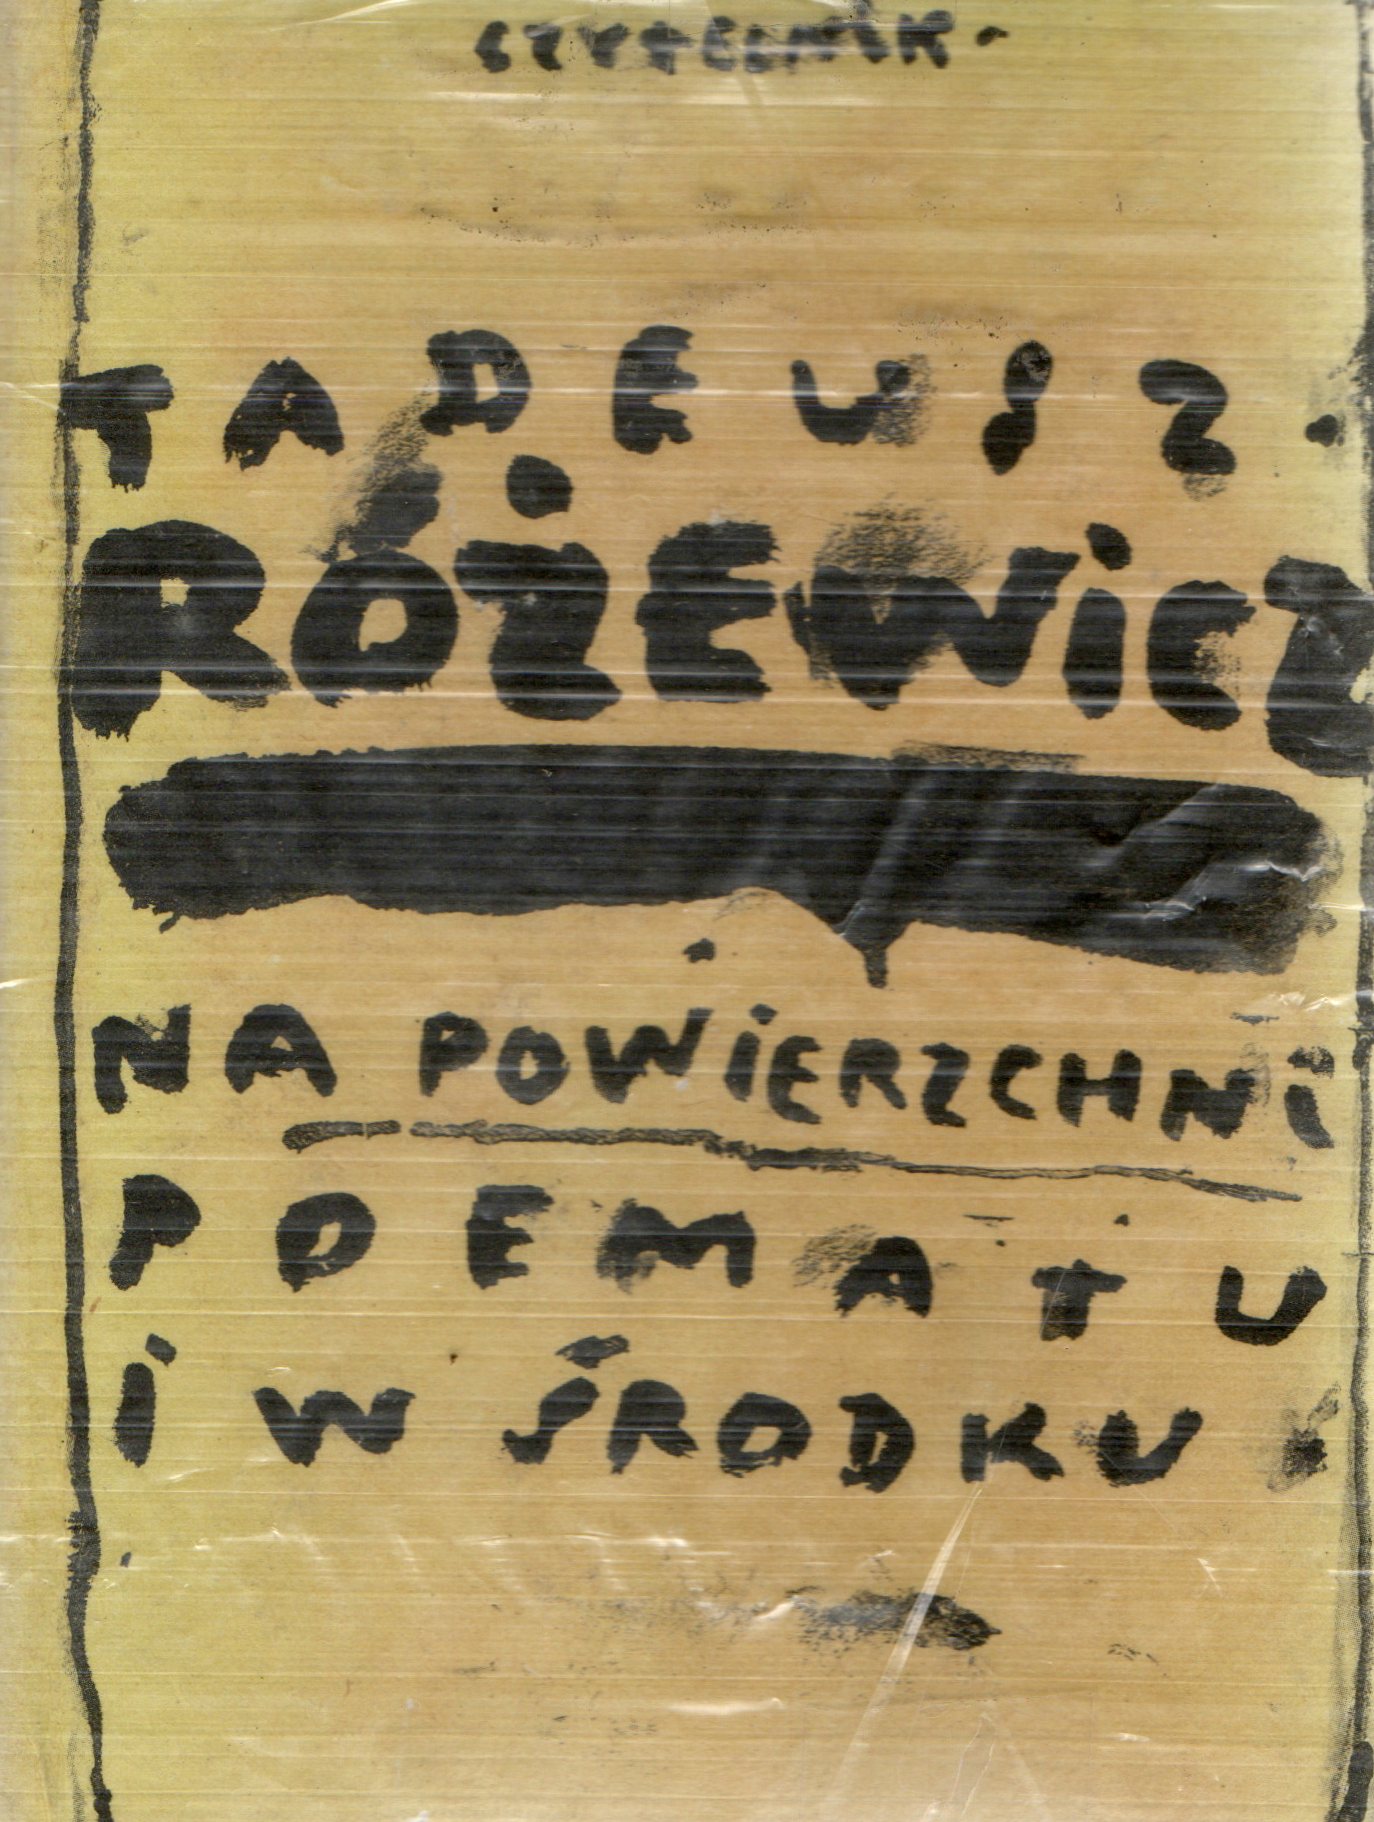 CZYTELNIK.
TADEUSZ.
RÓŻEWICZ
NA POWIERZCHNI
POEMATU
i W ŚRODKU.